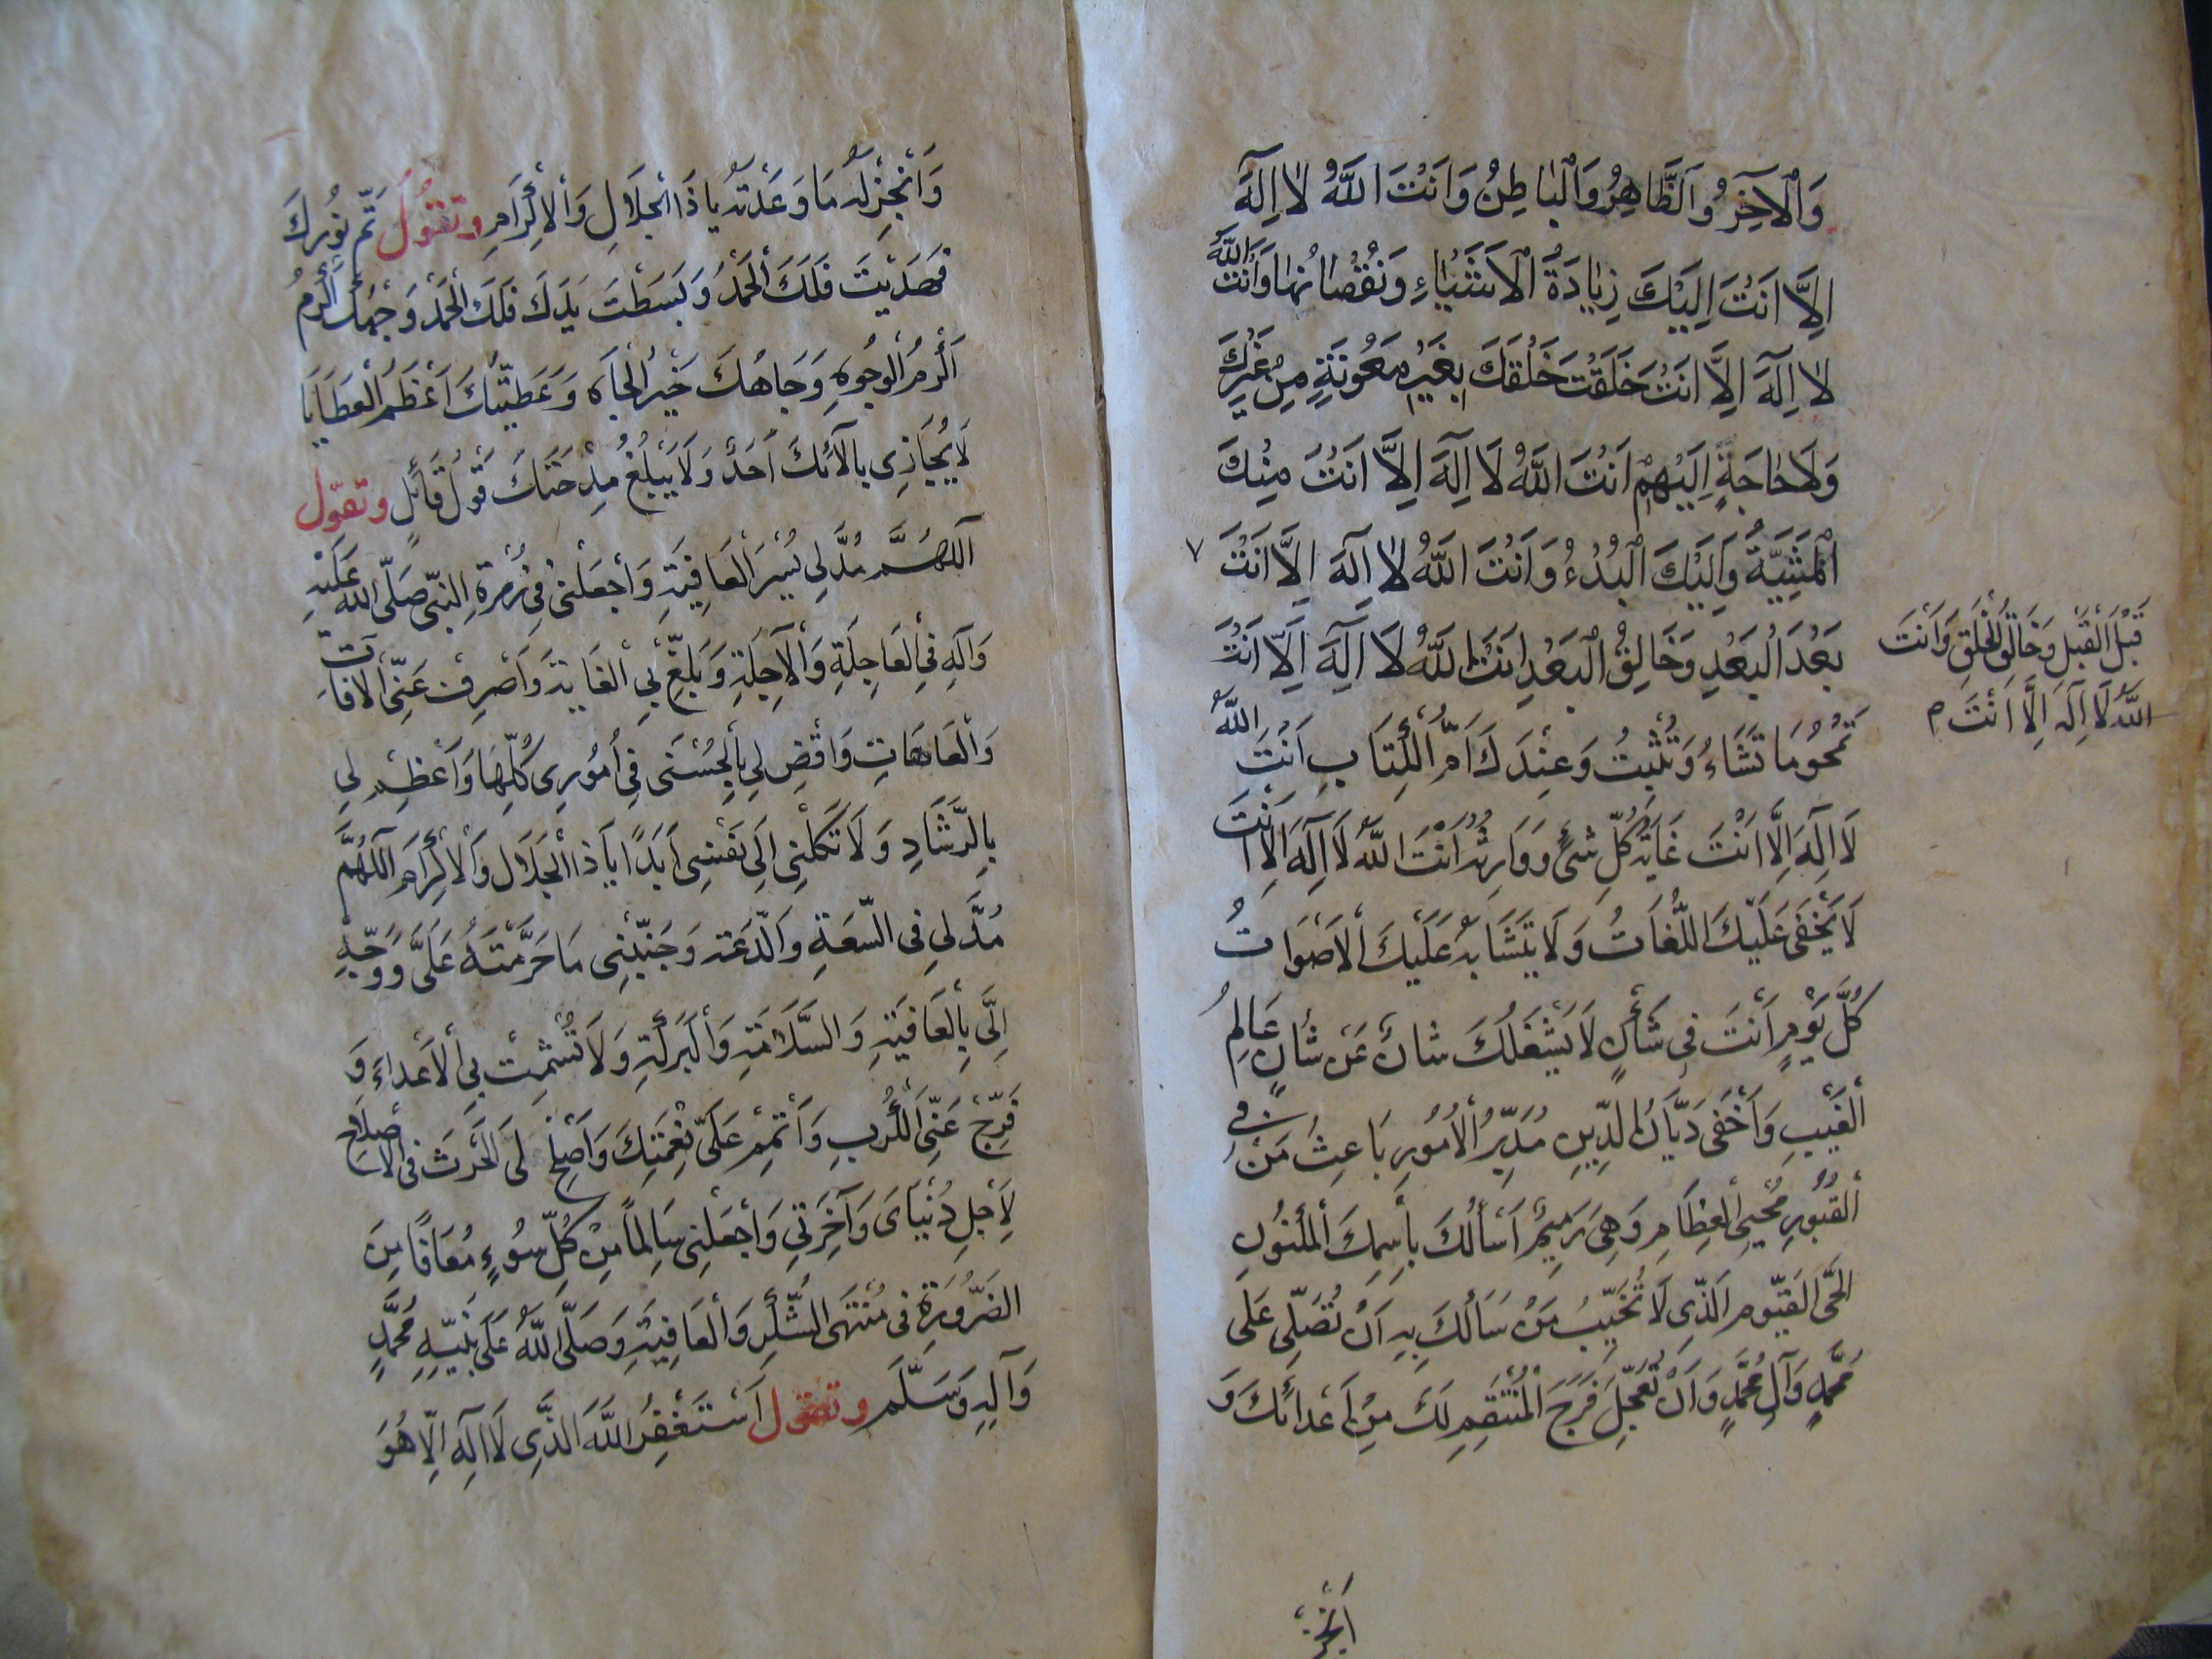 وَالْآخِرُ وَالظَّاهِرُ وَالْبَاطِنُ وَاَنْتَ اللَّهُ لَا اِلَهَ
اِلَّا اَنْتَ اِلَيْكَ زِيَادَةُ الْاَشْيَاءِ وَنُقْصَانُهَا وَاَنْتَ اللَّهُ
لَا اِلَهَ اِلَّا اَنْتَ خَلَقْتَ خَلْقَكَ بِغَيْرِ مَعُونَةٍ مِنْ غَيْرِكَ
وَلَا حَاجَةٍ اِلَيْهِمْ اَنْتَ اللَّهُ لَا اِلَهَ اِلَّا اَنْتَ مِنْكَ
الْمَشِيَّةُ وَاِلَيْكَ الْبُدْءُ وَاَنْتَ اللَّهُ لَا اِلَهَ اِلَّا اَنْتَ ٧
قَبْلَ الْقَبْلِ وَخَالِقُ الْخَلْقِ وَاَنْتَ
اللَّهُ لَا اِلَهَ اِلَّا اَنْتَ م
بَعْدَ الْبَعْدِ وَخَالِقُ الْبَعْدِ اَنْتَ اللَّهُ لَا اِلَهَ اِلَّا اَنْتَ
تَمْحُو مَا تَشَاءُ وَتُثْبِتُ وَعِنْدَكَ اُمُّ الْكِتَابِ اَنْتَ اللَّهُ
لَا اِلَهَ اِلَّا اَنْتَ غَايَةُ كُلِّ شَىْءٍ وَوَارِثُهُ اَنْتَ اللَّهُ لَا اِلَهَ اِلَّا اَنْتَ
لَا يَخْفَى عَلَيْكَ اللُّغَاتُ وَلَا يَتَشَابَهُ عَلَيْكَ الْاَصْوَاتُ
كُلَّ يَوْمٍ اَنْتَ فِى شَأْنٍ لَا يَشْغَلُكَ شَانٌ عَنْ شَانٍ عَالِمُ
الْغَيْبِ وَاَخْفَى دَيَّانُ الدِّينِ مُدَبِّرُ الْاُمُورِ بَاعِثُ مَنْ فِى
الْقُبُورِ مُحْيِى الْعِظَامِ وَهِىَ رَمِيمٌ اَسْأَلُكَ بِاسْمِكَ الْمَكْنُونِ
الْحَىِّ الْقَيُّومِ الَّذِى لَا تُخَيِّبُ مَنْ سَاَلَكَ بِهِ اَنْ تُصَلِّىَ عَلَى
مُحَمَّدٍ وَآلِ مُحَمَّدٍ وَاَنْ تُعَجِّلَ فَرَجَ الْمُنْتَقِمِ لَكَ مِنْ اَعْدَائِكَ وَ
وَاَنْجِزْ لَهُ مَا وَعَدْتَهُ يَا ذَا الْجَلَالِ وَالْاِكْرَامِ وتقُولُ تَمَّ نُورُكَ
فَهَدَيْتَ فَلَكَ الْحَمْدُ وَبَسَطْتَ يَدَكَ فَلَكَ الْحَمْدُ وَجْهُكَ اَكْرَمُ
اَكْرَمُ الْوُجُوهِ وَجَاهُكَ خَيْرُ الْجَاهِ وَعَطِيَّتُكَ اَعْظَمُ الْعَطَايَا
لَا يُجَازِى بِآلَائِكَ اَحَدٌ وَلَا يَبْلُغُ مِدْحَتَكَ قَوْلُ قَائِلٍ وتقُول
اَللَّهُمَّ مُدَّ لِى يُسْرَ الْعَافِيَةِ وَاجْعَلْنِى فِى زُمْرَةِ النَّبِىِّ صَلَّى اللَّهُ عَلَيْهِ
وَآلِهِ فِى الْعَاجِلَةِ وَالْآجِلَةِ وَبَلِّغْ بِىَ الْغَايَةَ وَاصْرِفْ عَنِّى الْآفَاتِ
وَالْعَاهَاتِ وَاقْضِ لِى بِالْحُسْنَى فِى اُمُورِى كُلِّهَا وَاَعْظِمْ لِى
بِالرَّشَادِ وَلَا تَكِلْنِى اِلَى نَفْسِى اَبَدًا يَا ذَا الْجَلَالِ وَالْاِكْرَامِ اَللَّهُمَّ
مُدَّ لِى فِى السَّعَةِ وَالدَّعَةِ وَجَنِّبْنِى مَا حَرَّمْتَهُ عَلَىَّ وَوَجِّهْ
اِلَىَّ بِالْعَافِيَةِ وَالسَّلَامَةِ وَالْبَرَكَةِ وَلَا تُشْمِتْ بِىَ الْاَعْدَاءَ وَ
فَرِّجْ عَنِّى الْكُرَبِ وَاَتْمِمْ عَلَىَّ نِعْمَتَكَ وَاَصْلِحْ لِىَ الْحَرْثَ فِى الْاَصْلَاحِ
لِاَجْلِ دُنْيَاىَ وَآخِرَتِى وَاجْعَلْنِى سَالِمًا مِنْ كُلِّ سُوءٍ مُعَافًا مِنَ
الضَّرُورَةِ فِى مُنْتَهَى الشُّكْرِ وَالْعَافِيَةِ وَصَلَّى اللَّهُ عَلَى نَبِيِّهِ مُحَمَّدٍ
وَآلِهِ وَسَلَّمَ وتقُول اَسْتَغْفِرُ اللَّهَ الَّذِى لَا اِلَهَ اِلَّا هُوَ